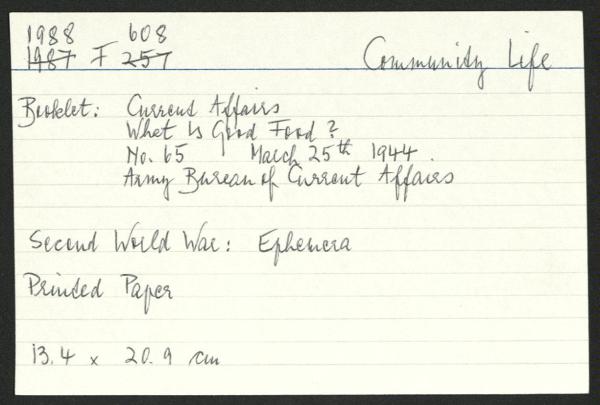 1988 608
1987 F 257 Community Life
Booklet: Current Affairs
What Is Good Food?
No. 65 March 25th 1944.
Army Bureau of Current Affairs
Second World War: Ephemera
Printed Paper
13.4 x 20.9 cm